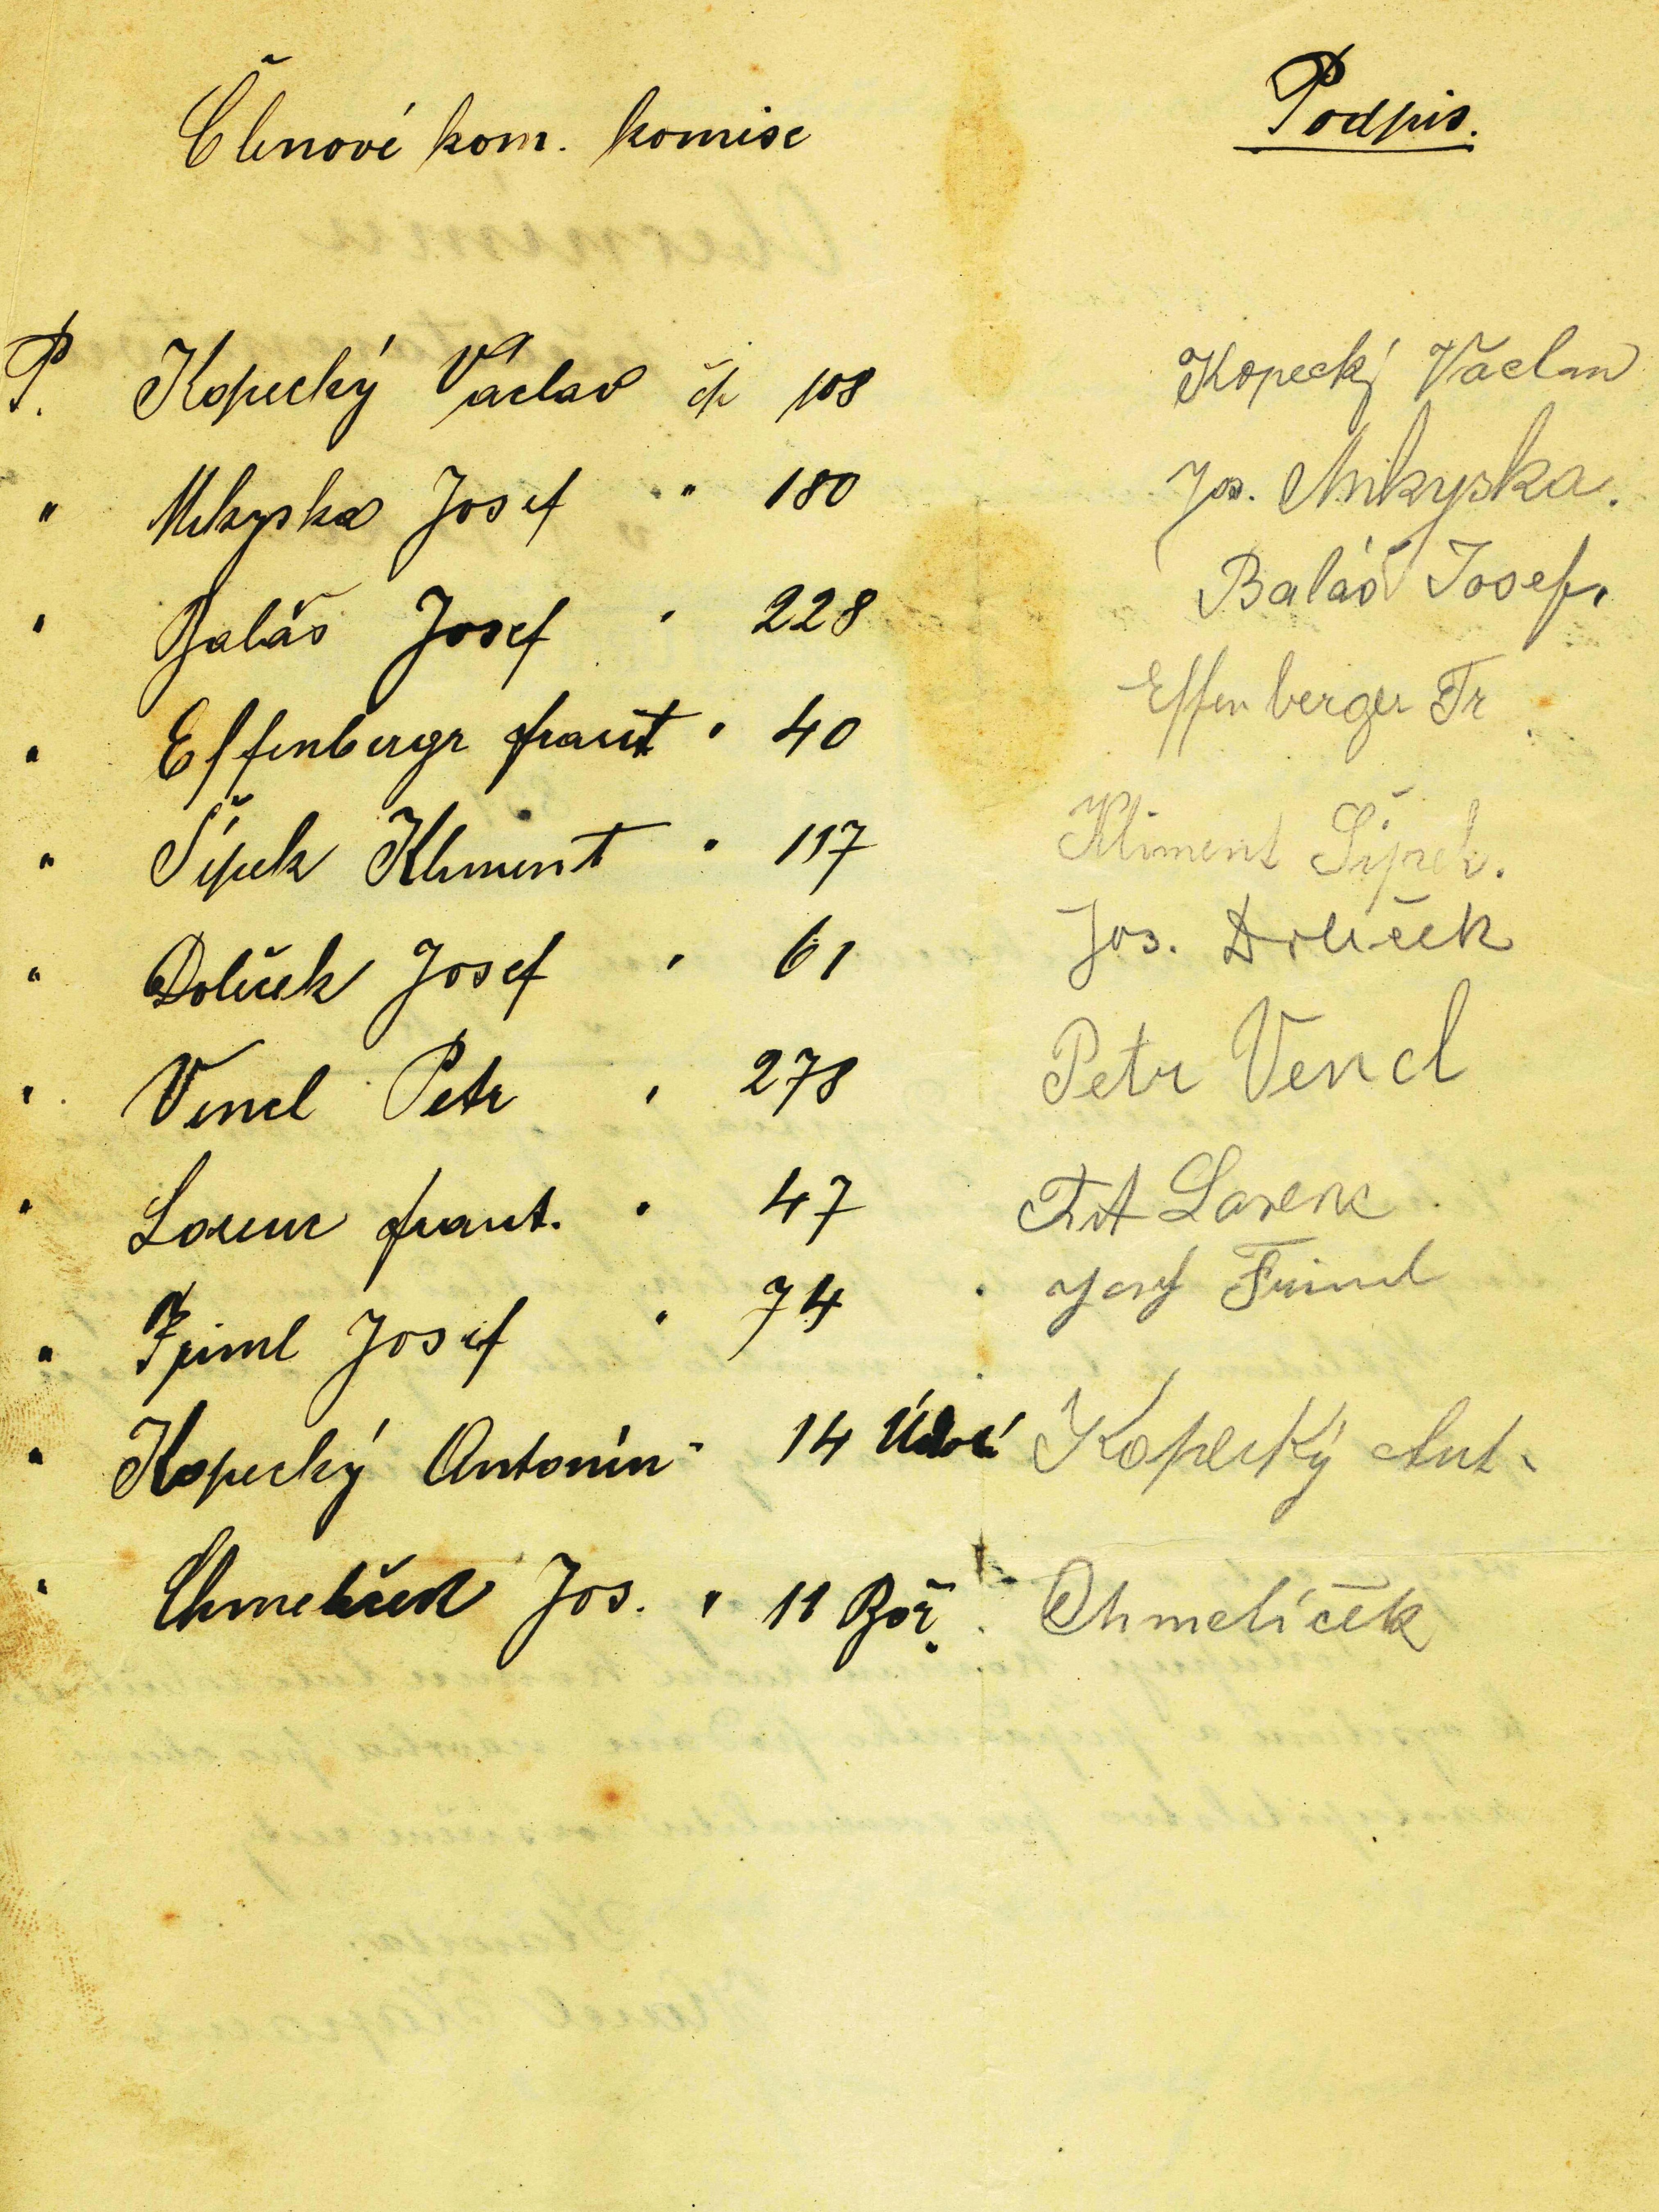 Členové kom. komise Podpis.
P. Kopecký Václav čp 108 Kopecký Václav
" Mikyska Josef " 180 Jos. Mikyska.
" Baláš Josef " 228 Baláš Josef.
" Effenbergr Frant " 40 Effenberger Fr
" Šípek Kliment " 117 Kliment Šípek.
" Doleček Josef " 61 Jos.
" Vencl Petr " 278 Petr Vencl
" Lorenc Frant. " 47 Frt Lorenc
" Friml Josef " 74 Josef Friml
" Kopecký Antonín " 14 Kopecký Ant.
" Chmelíček Jos. " 11 Bož. Chmelíček